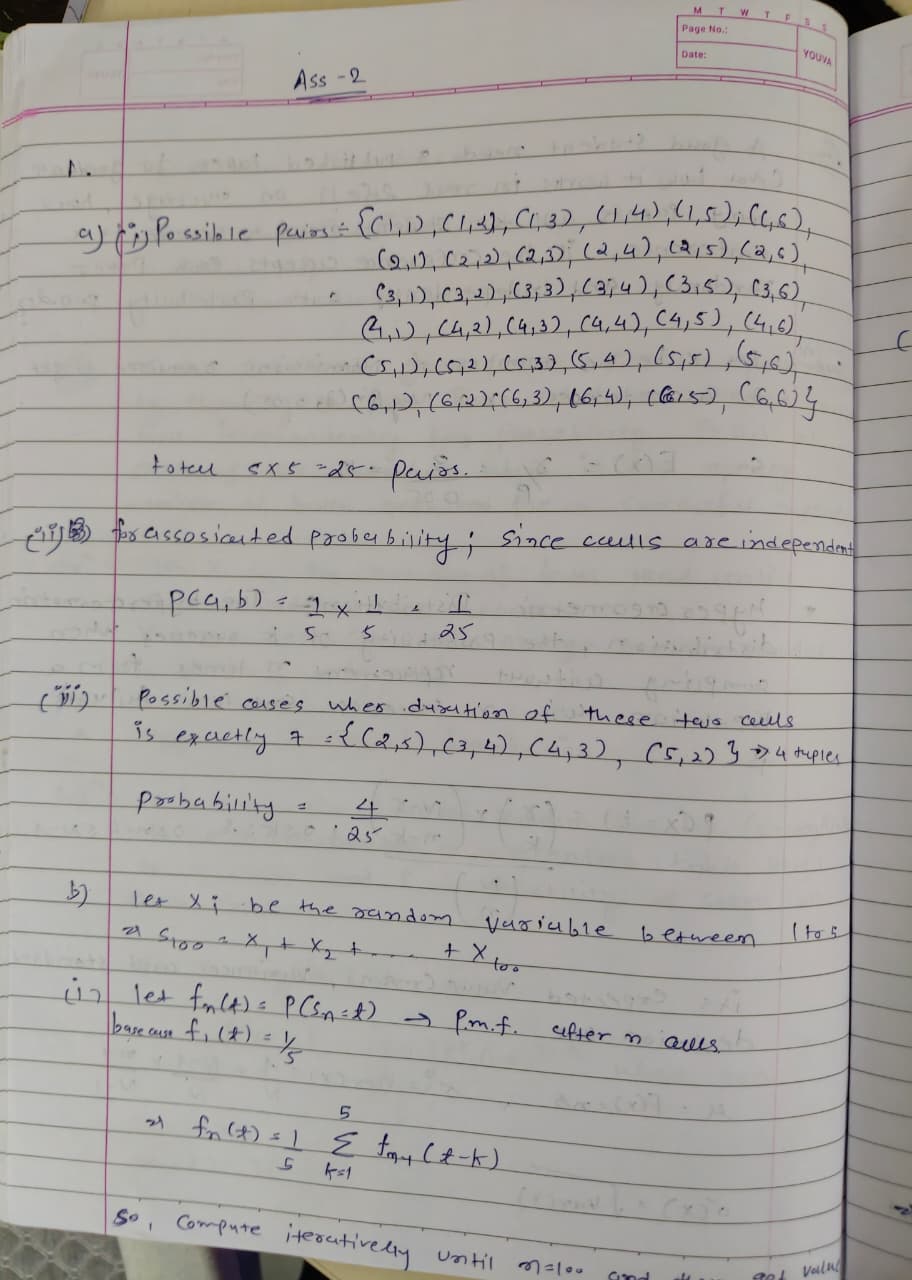 M T W T F S S
Page No.:
Date:
YOUVA
Ass-2
1.
a) (i) Possible pairs = {(1,1), (1,2), (1,3), (1,4), (1,5), (1,6),
(2,1), (2,2), (2,3), (2,4), (2,5), (2,6),
(3,1), (3,2), (3,3), (3,4), (3,5), (3,6)
(4,1), (4,2), (4,3), (4,4), (4,5), (4,6)
(5,1), (5,2), (5,3), (5,4), (5,5), (5,6),
(6,1), (6,2), (6,3), (6,4), (6,5), (6,6)}
total 5x5 = 25 pairs.
(ii) for assosicated probability; since calls are independent
P(a,b) = 1/5 x 1/5 = 1/25
(iii) Possible cases when duration of these two calls
is exactly 7 = {(2,5), (3,4), (4,3), (5,2)} => 4 tuples
Probability = 4/25
b) let Xi be the random variable between 1 to 5
=> S100 = X1 + X2 + .... + X100
(i) let fn(t) = P(Sn=t) → P.m.f. after n calls
base case f1(t) = 1/5
=> fn(t) = 1/5 5 Σ k=1 fn-1(t-k)
So, compute iteratively until n=100 and then get value